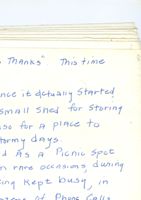 Thanks" This time
nce it actually started
small shed for storing
so for a place to
tormy days.
d As a Picnic spot
n rare occasions, during
ing Kept busy, in
of Phone Calls